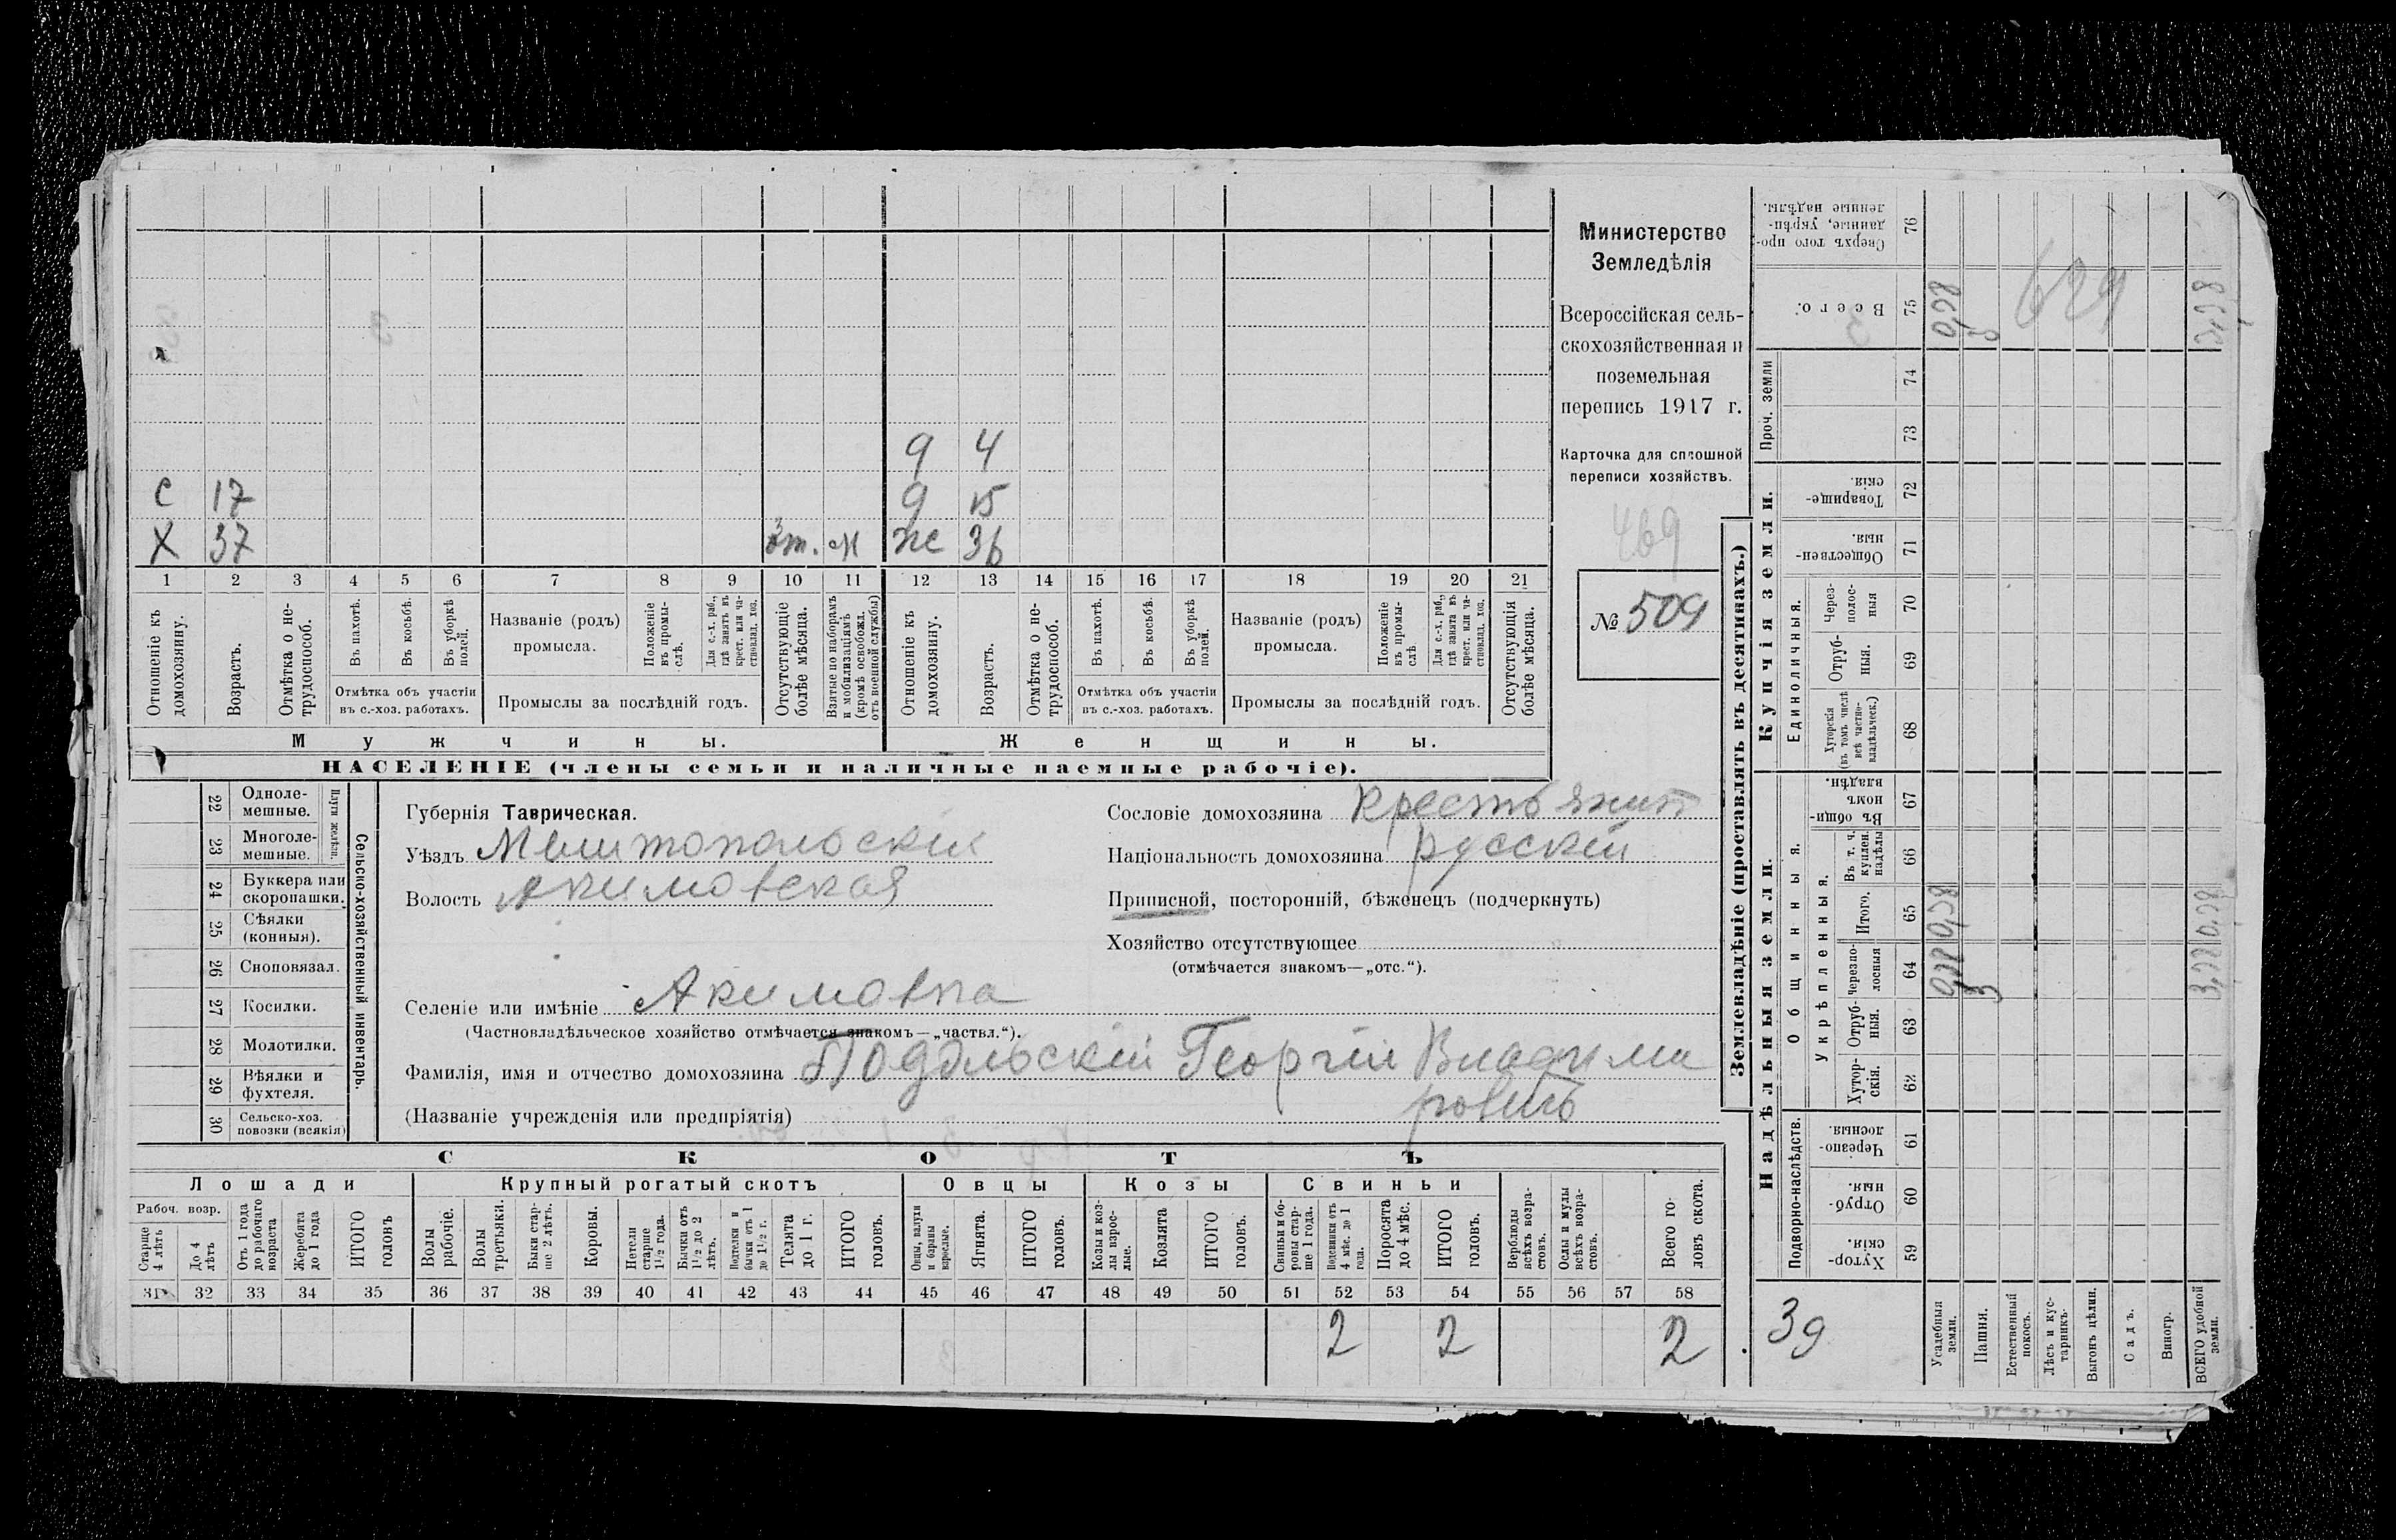 д 4
С 17 д 15
Х 37 м ж 36
1 2 3 4 5 6 7 8 9 10 11 12 13 14 15 16 17 18 19 20 21
Отношеніе къ домохозяину.
Возрастъ.
Отмѣтка о не-трудоспособ.
Въ пахотѣ.
Въ косьбѣ.
Въ уборкѣ полей.
Отмѣтка объ участіи
въ с.-хоз. работахъ.
Названіе (родъ)
промысла.
Положеніе въ промы-слѣ.
Для с.-х. раб., гдѣ занятъ въ крест. или ча-стновлад. хоз.
Промыслы за послѣдній годъ.
Отсутствующіе болѣе мѣсяца.
Взятые по наборамъ и мобилизаціямъ (кромѣ освобожд. отъ военной службы)
Отношеніе къ домохозяину.
Возрастъ.
Отмѣтка о не-трудоспособ.
Въ пахотѣ.
Въ косьбѣ.
Въ уборкѣ полей.
Отмѣтка объ участіи
въ с.-хоз. работахъ.
Названіе (родъ)
промысла.
Положеніе въ промы-слѣ
Для с.-х. раб., гдѣ занята въ крест. или ча-стновлад. хоз.
Промыслы за послѣдній годъ.
Отсутствующія болѣе мѣсяца.
Мужчины.
Женщины.
НАСЕЛЕНІЕ (члены семьи и наличные наемные рабочіе).
Министерство
Земледѣлія
Всероссійская сель-
скохозяйственная и
поземельная
перепись 1917 г.
Карточка для сплошной
переписи хозяйствъ.
469
№ 509
22 Одноле-мешные.
23 Многоле-мешные.
Плуги желѣзн.
24 Буккера или скоропашки.
25 Сѣялки (конныя).
26 Сноповязал.
27 Косилки.
28 Молотилки.
29 Вѣялки и фухтеля.
30 Сельско-хоз. повозки (всякія)
Сельско-хозяйственный инвентарь.
Губернія Таврическая.
Уѣздъ Мелитопольскій
Волость Акимовская
Сословіе домохозяина Крестьянин
Національность домохозяина русскій
Приписной, посторонній, бѣженецъ (подчеркнуть)
Хозяйство отсутствующее
(отмѣчается знакомъ—„отс.“).
Селеніе или имѣніе Акимовка
(Частновладѣльческое хозяйство отмѣчается знакомъ—„частвл.“).
Фамилія, имя и отчество домохозяина Подольскій Георгій Владими
ровичъ
(Названіе учрежденія или предпріятія)
СКОТЪ
Лошади
Крупный рогатый скотъ
Овцы
Козы
Свиньи
Рабоч. возр.
Старше 4 лѣтъ
До 4 лѣтъ
Отъ 1 года до рабочаго возраста
Жеребята до 1 года
ИТОГО головъ
Волы рабочіе.
Волы третьяки.
Быки стар-ше 2 лѣтъ.
Коровы.
Нетели старше 1½ года.
Бычки отъ 1½ до 2 лѣтъ.
Подтелки и бычки отъ 1 до 1½ г.
Телята до 1 г.
ИТОГО головъ.
Овцы, валухи и бараны взрослые.
Ягнята.
ИТОГО головъ.
Козы и коз-лы взрос-лые.
Козлята
ИТОГО головъ.
Свиньи и бо-ровы стар-ше 1 года.
Подсвинки отъ 4 мѣс. до 1 года.
Поросята до 4 мѣс.
ИТОГО головъ.
Верблюды всѣхъ возра-стовъ.
Ослы и мулы всѣхъ возра-стовъ.
Всего го-ловъ скота.
31 32 33 34 35 36 37 38 39 40 41 42 43 44 45 46 47 48 49 50 51 52 53 54 55 56 57 58
2 2 2
Землевладѣніе (проставлять въ десятинахъ.)
Надѣльныя земли.
Купчія земли.
Проч. земли
Подворно-наслѣдств.
Общинныя.
Укрѣпленныя.
Единоличныя.
Хутор-скія. 59
Отруб-ныя. 60
Черезпо-лосныя 61
Хутор-скія. 62
Отруб-ныя. 63
Черезпо-лосныя 64
Итого. 65
Въ т. ч. куплен. надѣлы 66
Въ общи-номъ владѣн. 67
Хуторскія (въ томъ числѣ всѣ частно-владѣльческ.) 68
Отруб-ныя. 69
Через-полос-ныя 70
Обществен-ныя. 71
Товарище-скія. 72
73
74
Всего. 75
Сверхъ того про-данные, укрѣп-ленные надѣлы. 76
629
3
Усадебныя земли.
Пашня.
Естественный покосъ.
Лѣсъ и кус-тарникъ.
Выгонъ цѣлин.
Садъ.
Виногр.
ВСЕГО удобной земли.